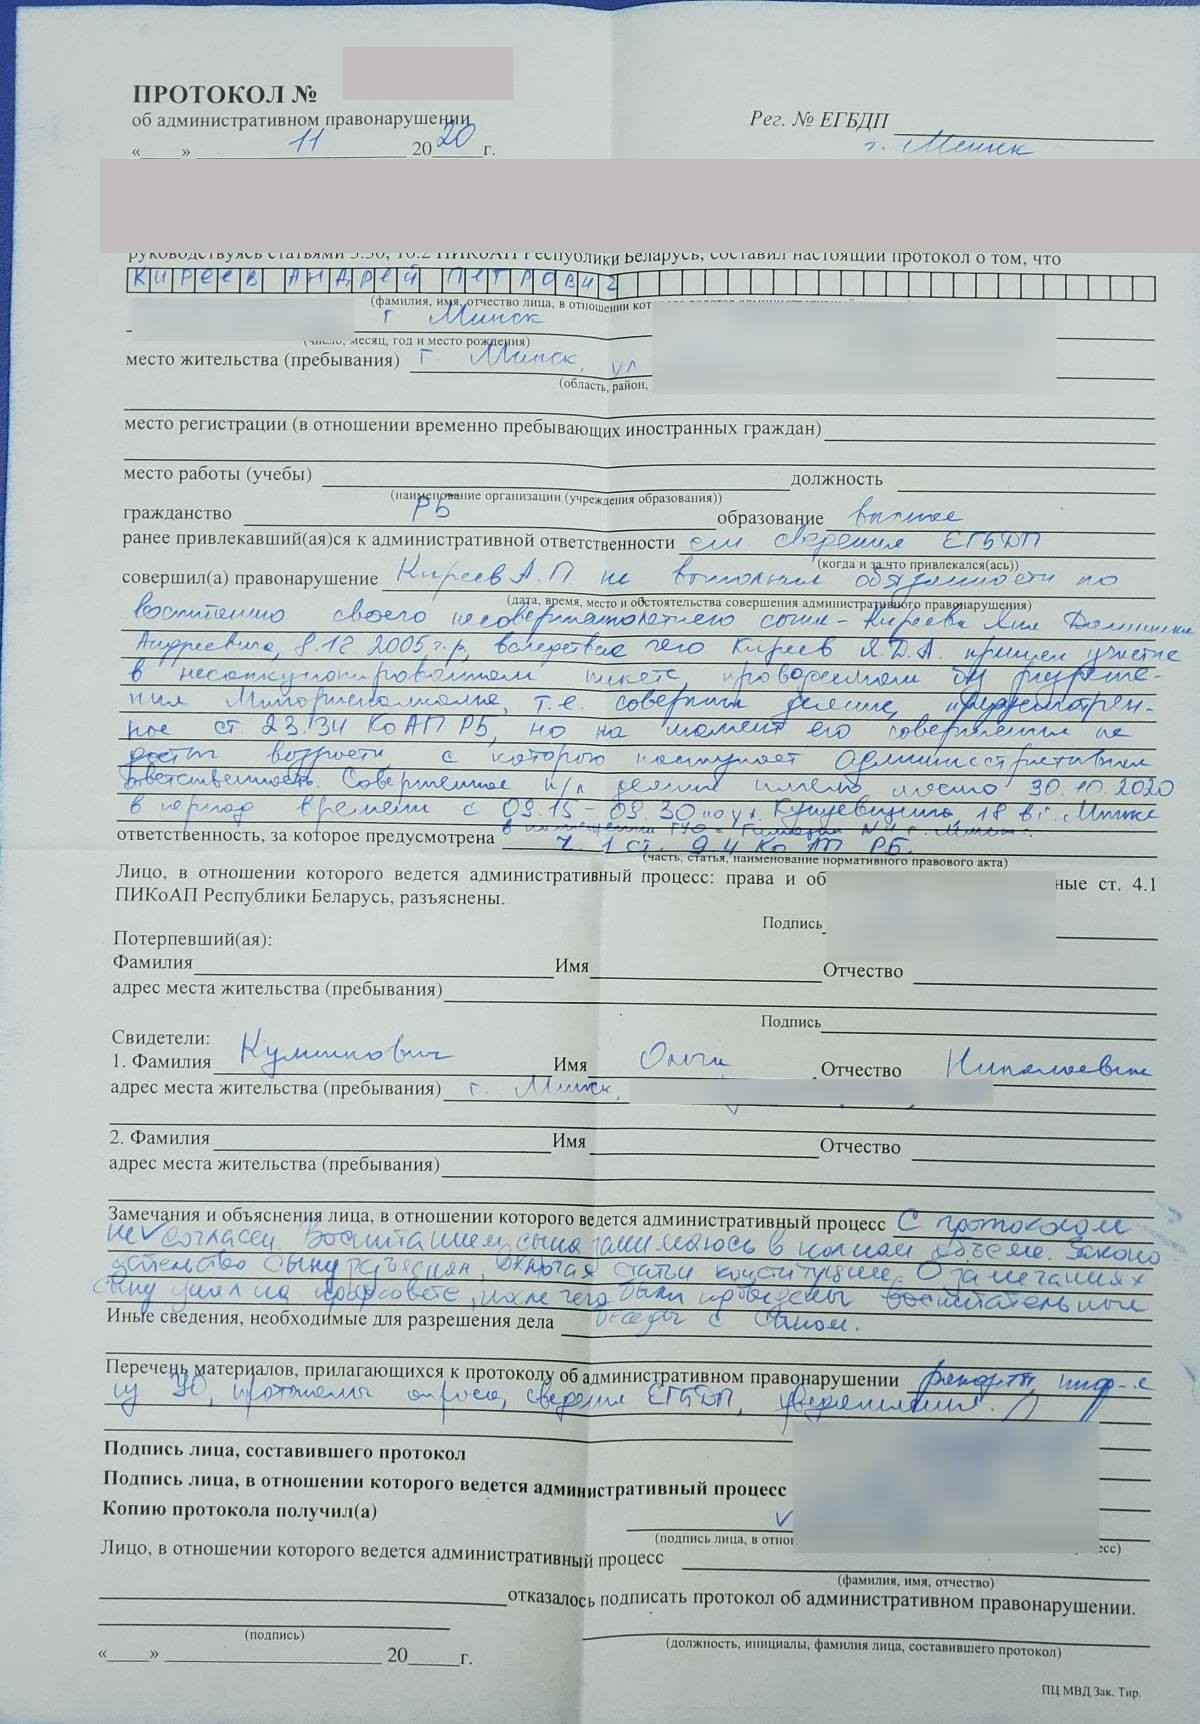 ПРОТОКОЛ №
об административном правонарушении
Рег. № ЕГБДП
«____» 11 2020 г.
г. Минск
руководствуясь статьями 3.30, 10.2 ПИКоАП Республики Беларусь, составил настоящий протокол о том, что
КИРЕЕВ АНДРЕЙ ПЕТРОВИЧ
(фамилия, имя, отчество лица, в отношении кот
г Минск
(число, месяц, год и место рождения)
место жительства (пребывания) г. Минск, ул
(область, район,
место регистрации (в отношении временно пребывающих иностранных граждан)
место работы (учебы) должность
(наименование организации (учреждения образования))
гражданство РБ образование высшее
ранее привлекавший(ая)ся к административной ответственности см сведения ЕГБДП
(когда и за что привлекался(ась))
совершил(а) правонарушение Киреев А.П не выполнил обязанности по
(дата, время, место и обстоятельства совершения административного правонарушения)
воспитанию своего несовершеннолетнего сына - Киреева Яна
Андреевича, 8.12 2005 г.р, вследствие чего Киреев Я.Д.А. принял участие
в несанкционированном пикете, проводимом без разреше-
ния Мингорисполкома, т.е. совершил деяние, предусмотрен-
ное ст. 23.34 КоАП РБ, но на момент его совершения не
достиг возраста с которого наступает административная
ответственность. Совершенное н/л деяние имело место 30.10.2020
в период времени с 09.15 - 09.30 по ул. Кунцевщина 18 в г. Минске
в помещении ГУО "Гимназия г. Минска".
ответственность, за которое предусмотрена ч. 1 ст. 9.4 Ко АП РБ.
(часть, статья, наименование нормативного правового акта)
Лицо, в отношении которого ведется административный процесс: права и об ные ст. 4.1
ПИКоАП Республики Беларусь, разъяснены.
Подпись
Потерпевший(ая):
Фамилия Имя Отчество
адрес места жительства (пребывания)
Подпись
Свидетели:
1. Фамилия Кулинкович Имя Ольга Отчество Николаевна
адрес места жительства (пребывания) г. Минск,
2. Фамилия Имя Отчество
адрес места жительства (пребывания)
Замечания и объяснения лица, в отношении которого ведется административный процесс С протоколом
не согласен Воспитанием сына занимаюсь в полном объеме. Законо
дательство сыну разъяснял, включая статьи конституции. О замечаниях
сыну узнал на профсовете, после чего были проведены воспитательные
беседы с сыном.
Иные сведения, необходимые для разрешения дела
Перечень материалов, прилагающихся к протоколу об административном правонарушении рапорты, инф-я
из УО, протоколы опроса, сведения ЕГБДП, уведомления.
Подпись лица, составившего протокол
Подпись лица, в отношении которого ведется административный процесс
Копию протокола получил(а)
(подпись лица, в отно есс)
Лицо, в отношении которого ведется административный процесс
(фамилия, имя, отчество)
отказалось подписать протокол об административном правонарушении.
(подпись)
(должность, инициалы, фамилия лица, составившего протокол)
«____» 20____г.
ПЦ МВД Зак. Тир.